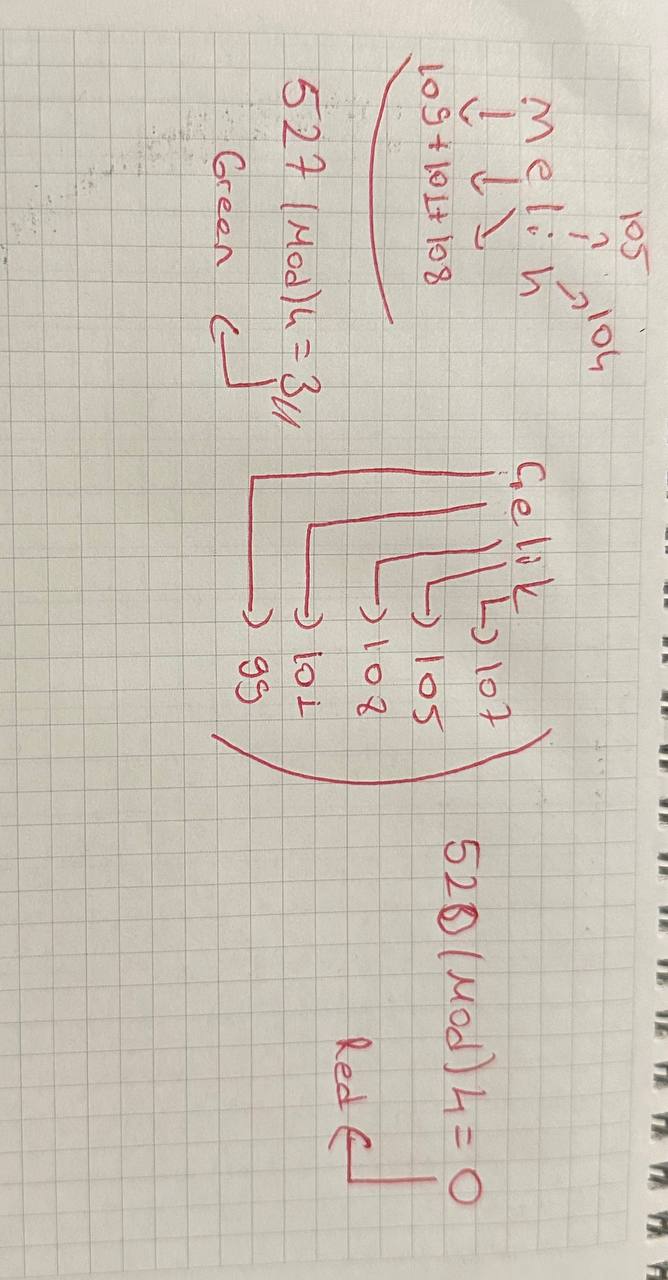 105
Melih
104
109+101+108
527 (Mod)4 = 3
Green
Çelik
107
105
108
101
99
520 (Mod) 4 = 0
Red